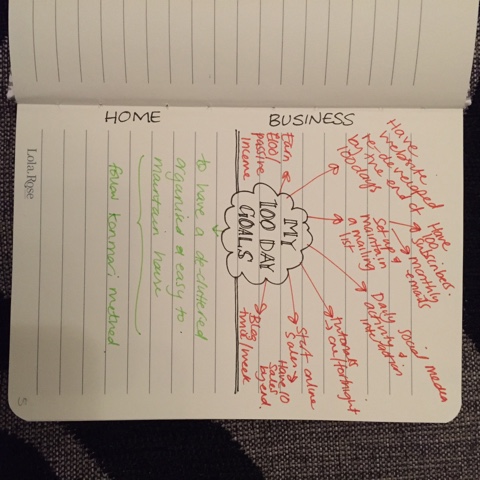 HOME
BUSINESS
MY
100 DAY
GOALS
Have
website
re-developed
by the end of
100 days
Have
100
subscribers.
monthly
emails
set up &
maintain
a mailing
list
Daily social media
activity &
interaction
tutorials
one/fortnight
start online
sales →
Have 10
sales
by end.
Blog
twice/week
Earn
£100/
passive
income
to have a de-cluttered
organised & easy to
maintain house
follow konmari method.
Lola Rose